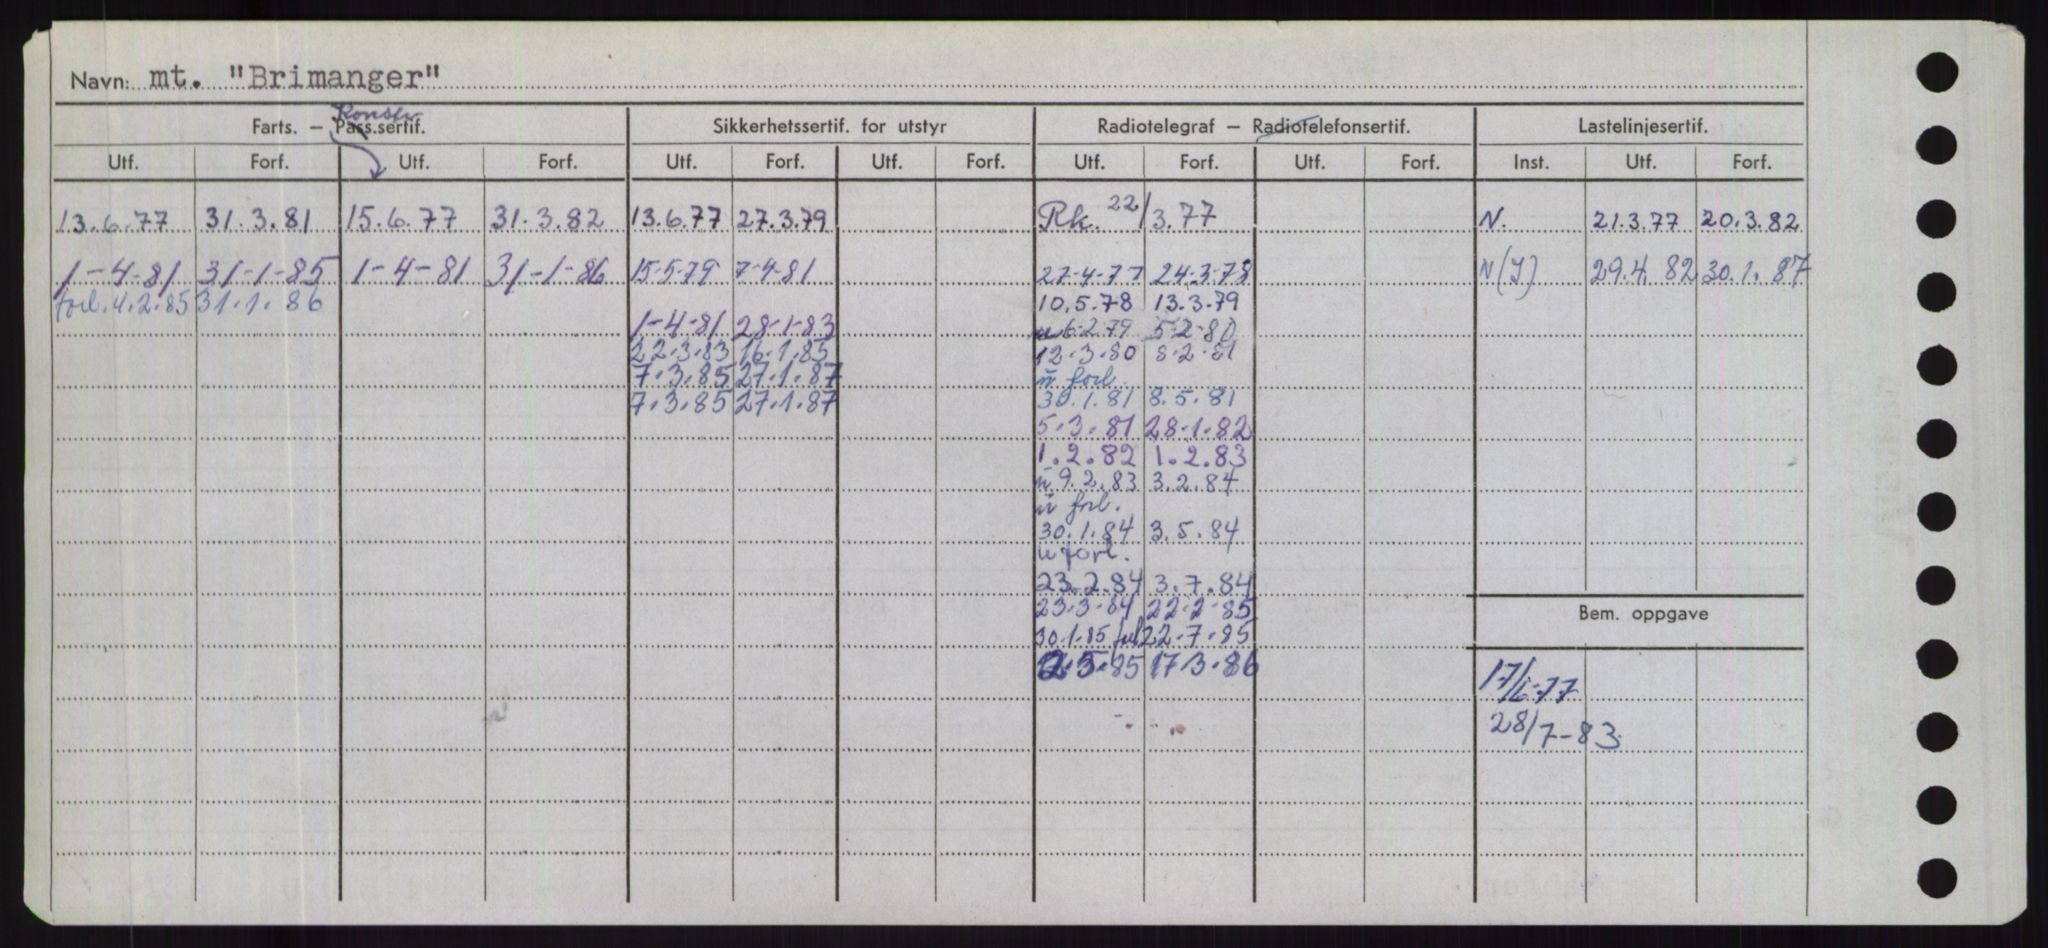 Navn: mt. "Brimanger"
Konstr.
Farts. — Pass.sertif. Sikkerhetssertif. for utstyr Radiotelegraf — Radiotelefonsertif. Lastelinjesertif.
Utf. Forf. Utf. Forf. Utf. Forf. Utf. Forf. Utf. Forf. Utf. Forf. Inst. Utf. Forf.
13.6.77 31.3.81 15.6.77 31.3.82 13.6.77 27.3.79 Rk. 22/3.77 N. 21.3.77 20.3.82
1-4-81 31-1-85 1-4-81 31-1-86 15-5-79 7-4-81 27-4-77 24-3-78 N(I) 29.4.82 30.1.87
forl. 4.2.85 31.1.86 10.5.78 13.3.79
1-4-81 28-1-83 6-2-79 5-2-80
22.3.83 16.1.85 12.3.80 8.2.81
7.3.85 27.1.87 u forl.
7.3.85 27.1.87 30.1.81 8.5.81
5.3.81 28.1.82
1.2.82 1.2.83
u 9.2.83 3.2.84
u forl.
30.1.84 3.5.84
u forl.
23.2.84 3.7.84
23.3.84 22.2.85
Bem. oppgave
30.1.85 forl 22.7.85
2.5.85 17.3.86
17/6-77
28/7-83